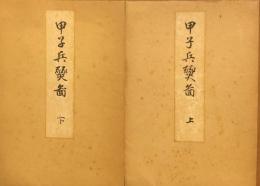 甲子兵燹啚
上
甲子兵燹啚
下